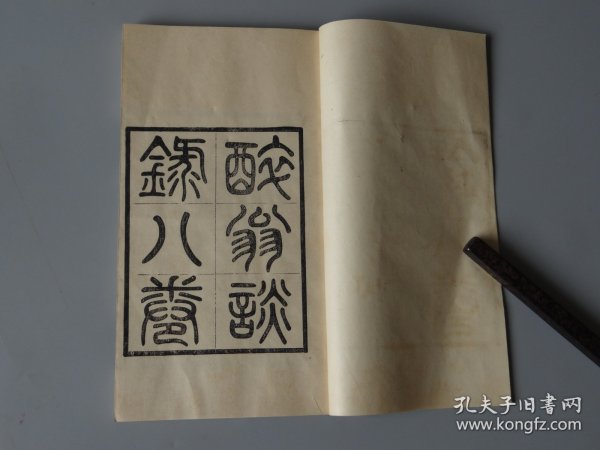 醉翁談
錄八卷
孔夫子旧書网
www.kongfz.com